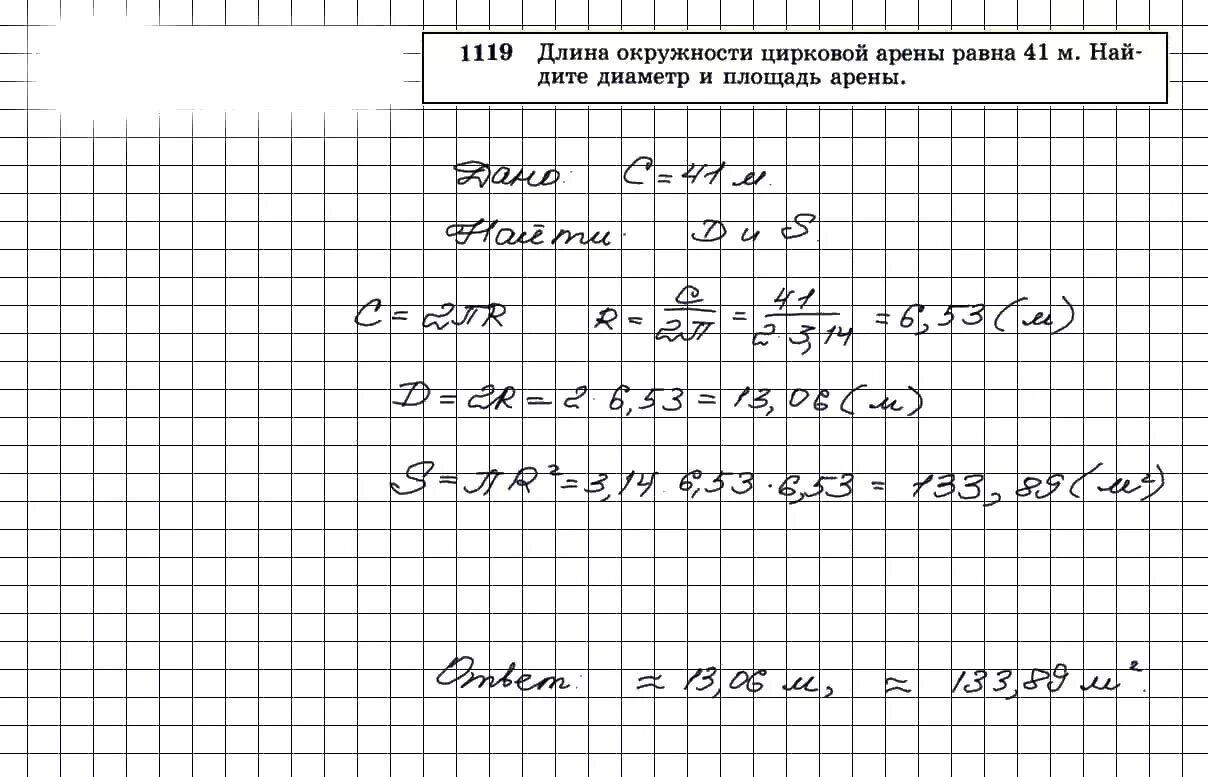 1119 Длина окружности цирковой арены равна 41 м. Най-
дите диаметр и площадь арены.
Дано: C = 41 м.
Найти: D и S.
C = 2πR R = C/2π = 41/2·3,14 = 6,53 (м)
D = 2R = 2·6,53 = 13,06 (м)
S = πR² = 3,14·6,53·6,53 = 133,89 (м²)
Ответ: ≈ 13,06 м, ≈ 133,89 м².